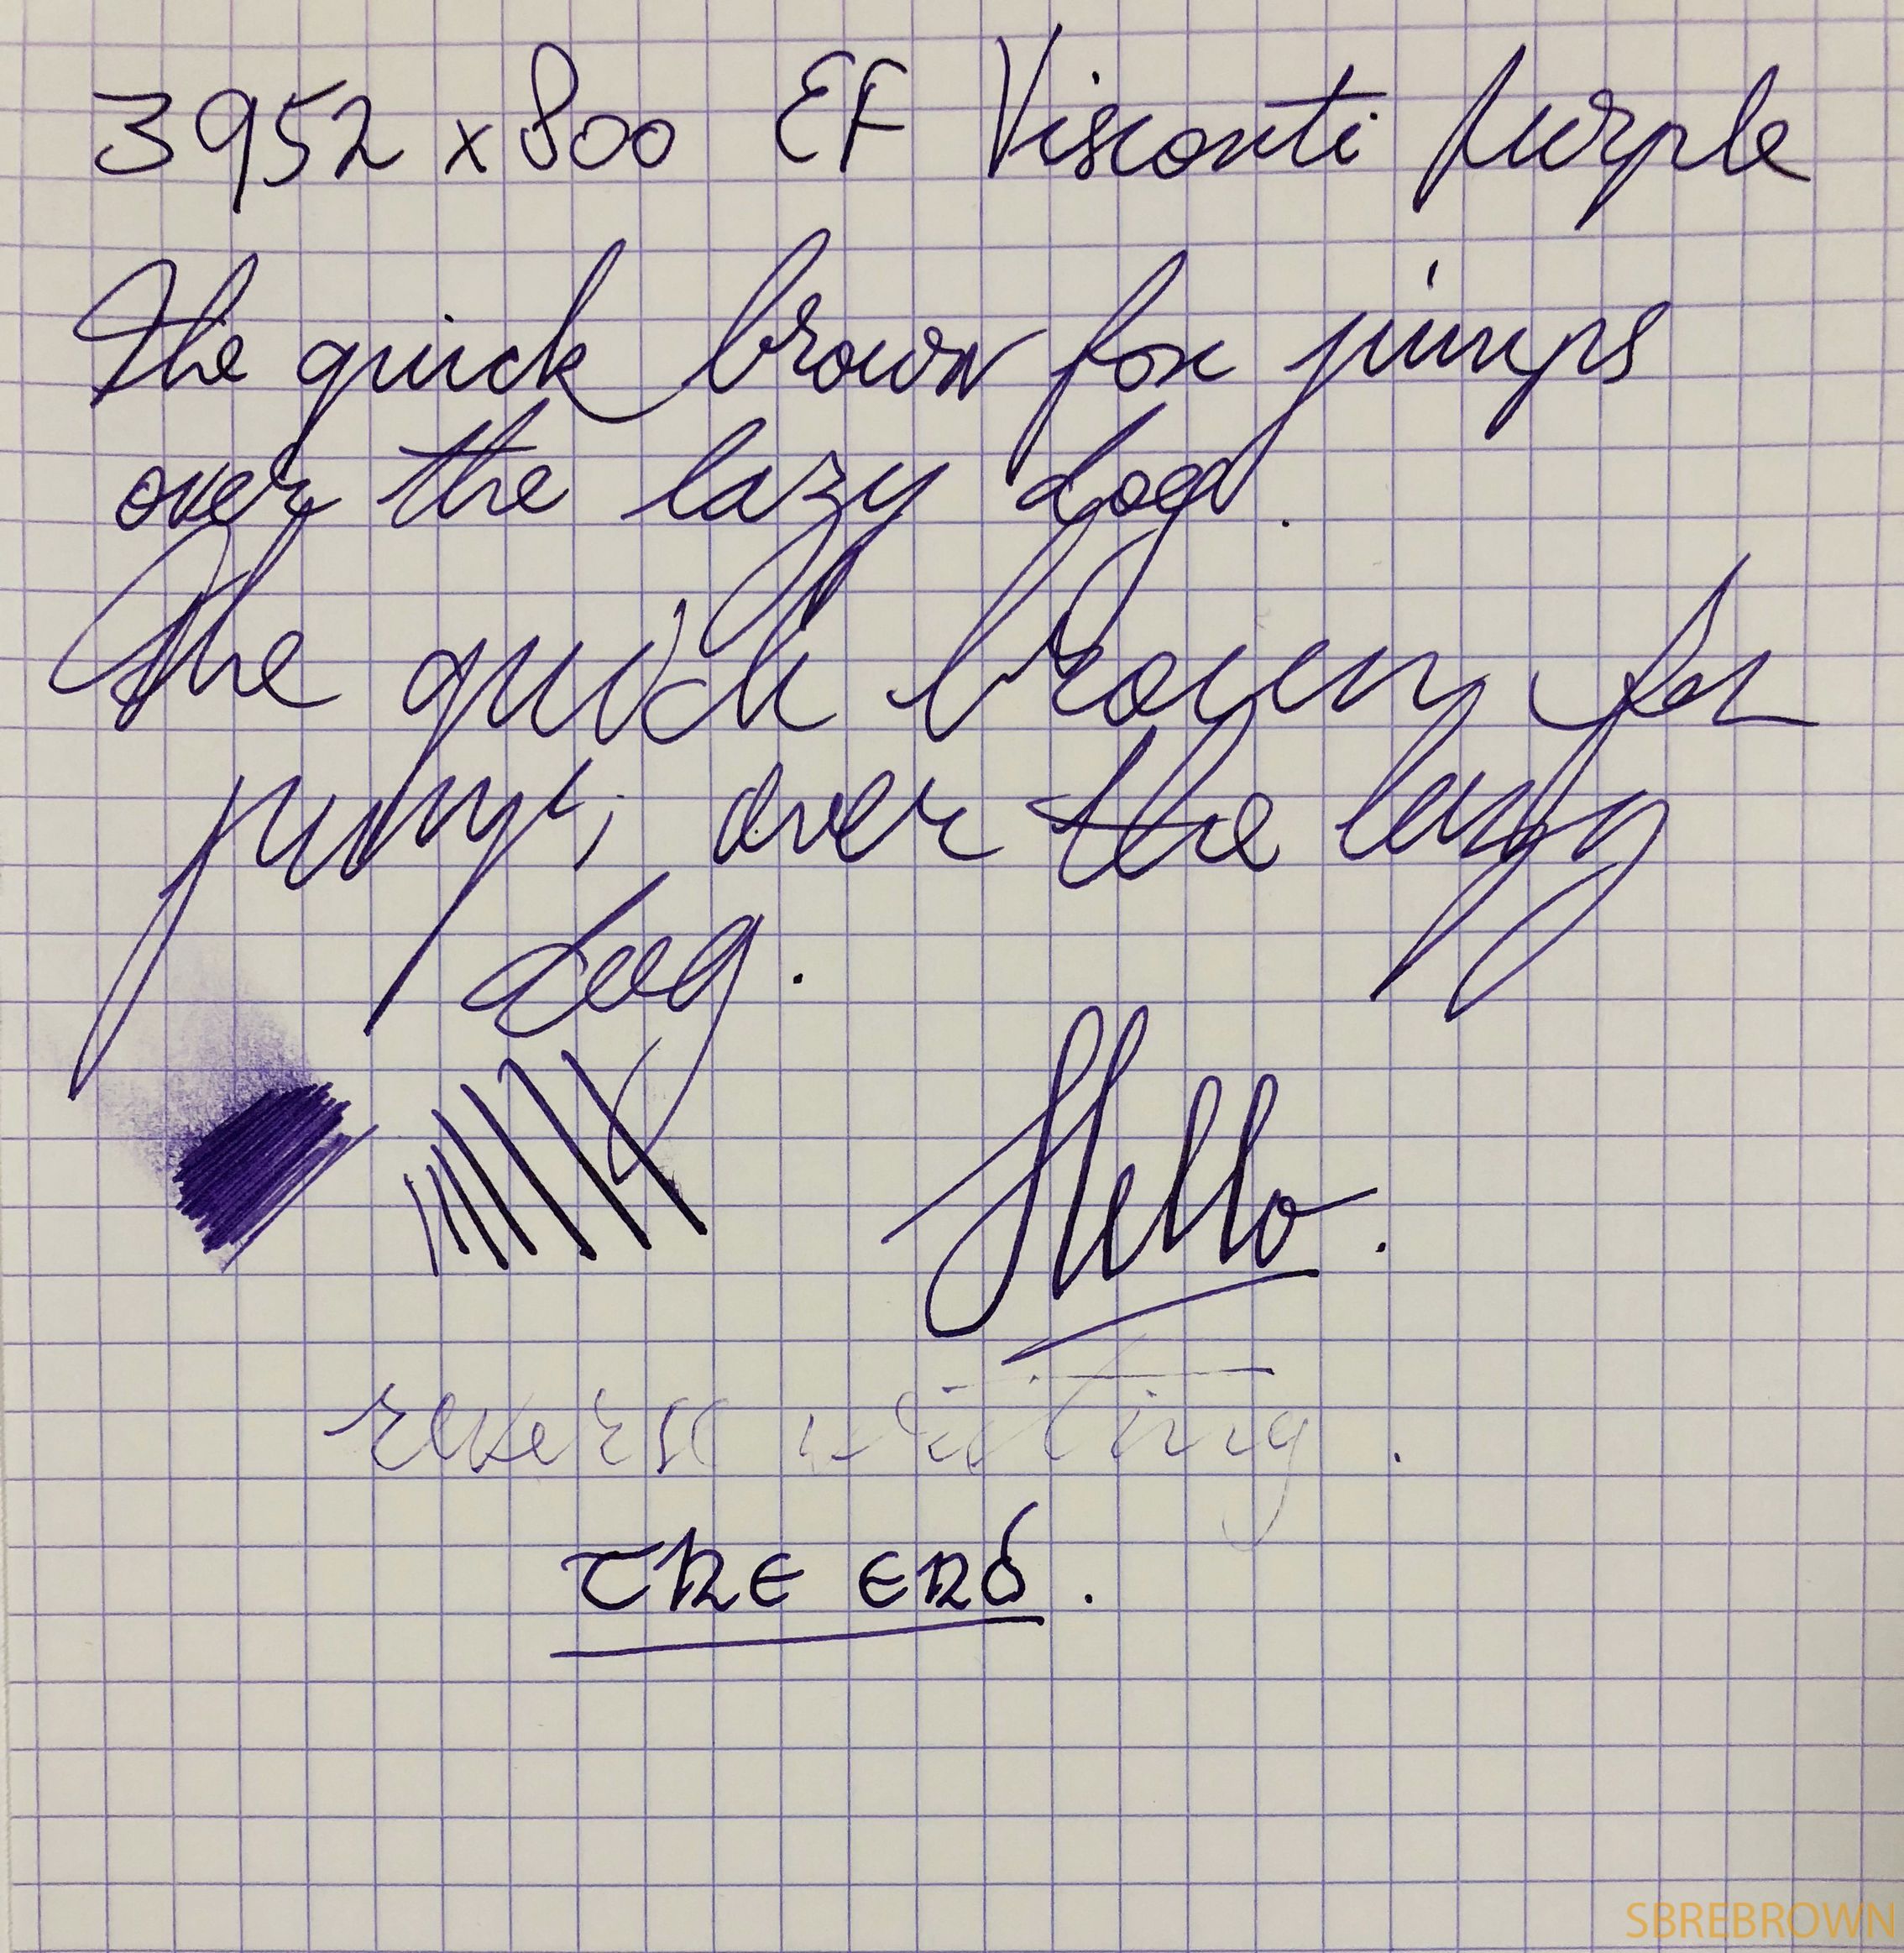 3952 x800 EF Visconti purple
The quick brown fox jumps
over the lazy dog.
The quick brown fox
jumps over the lazy
dog.
Hello.
reverse writing.
The end.
SBREBROWN